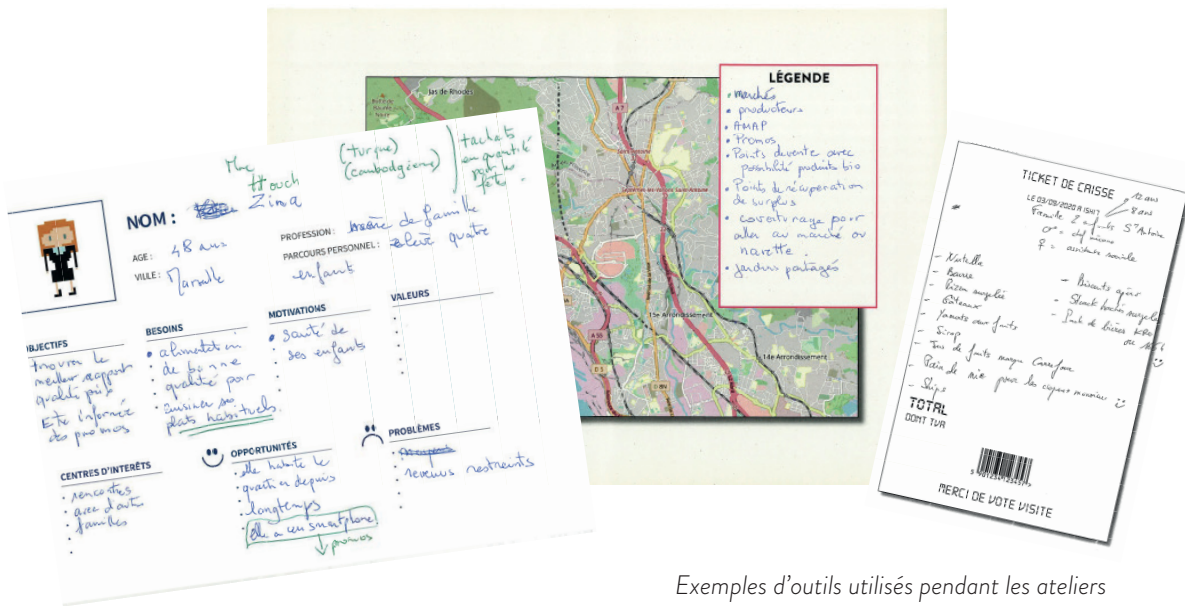 Mme
Houch
Zima
(turque)
(cambodgienne)
+ achats
en quantité
pour les
fêtes.
NOM :
AGE : 48 ans
VILLE : Marseille
PROFESSION : mère de famille
PARCOURS PERSONNEL : élève quatre
enfants
OBJECTIFS
trouver le
meilleur rapport
qualité prix
Etre informée
des promos
BESOINS
• alimentation
• de bonne
• qualité pour
• cuisiner ses
plats habituels.
MOTIVATIONS
• santé de
• ses enfants
VALEURS
CENTRES D'INTERÊTS
• rencontres
• avec d'autres
• familles
OPPORTUNITÉS
• elle habite le
• quartier depuis
• longtemps
elle a un smartphone
promos
PROBLÈMES
• revenus restreints
Jas de Rhodes
A 7
Saint-Antoine
15e Arrondissement
14e Arrondissement
A 55
D 5
D 8N
LÉGENDE
• marchés
• producteurs
• AMAP
• Promos
• Points de vente avec
possibilité produits bio
• Points de récupération
de surplus
• covoiturage pour
aller au marché ou
navette.
• jardins partagés
TICKET DE CAISSE
LE 03/09/2020 A 15H17
12 ans
8 ans
Famille 2 enfants St Antoine
♂ = chef
♀ = assistante sociale
- Nutella
- Beurre
- Pizza surgelée
- Gâteaux
- Yaourts aux fruits
- Sirop
- Jus de fruits marque Carrefour
- Pain de mie pour les croques monsieur
- Chips
- Biscuits apéro
- Steack haché surgelé
- Pack de bières
TOTAL
DONT TVA
MERCI DE VOTE VISITE
Exemples d'outils utilisés pendant les ateliers